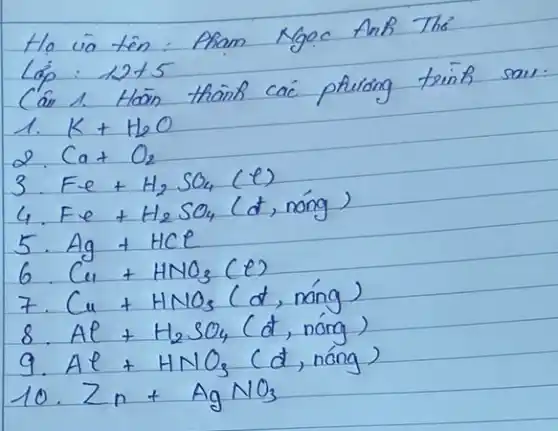 Họ và tên : Phạm Ngọc Anh Thế
Lớp : 12+5
Câu 1. Hoàn thành các phương trình sau:
1. K + H₂O
2. Ca + O₂
3. Fe + H₂SO₄ (l)
4. Fe + H₂SO₄ (đ, nóng)
5. Ag + HCl
6. Cu + HNO₃ (l)
7. Cu + HNO₃ (đ, nóng)
8. Al + H₂SO₄ (đ, nóng)
9. Al + HNO₃ (đ, nóng)
10. Zn + AgNO₃